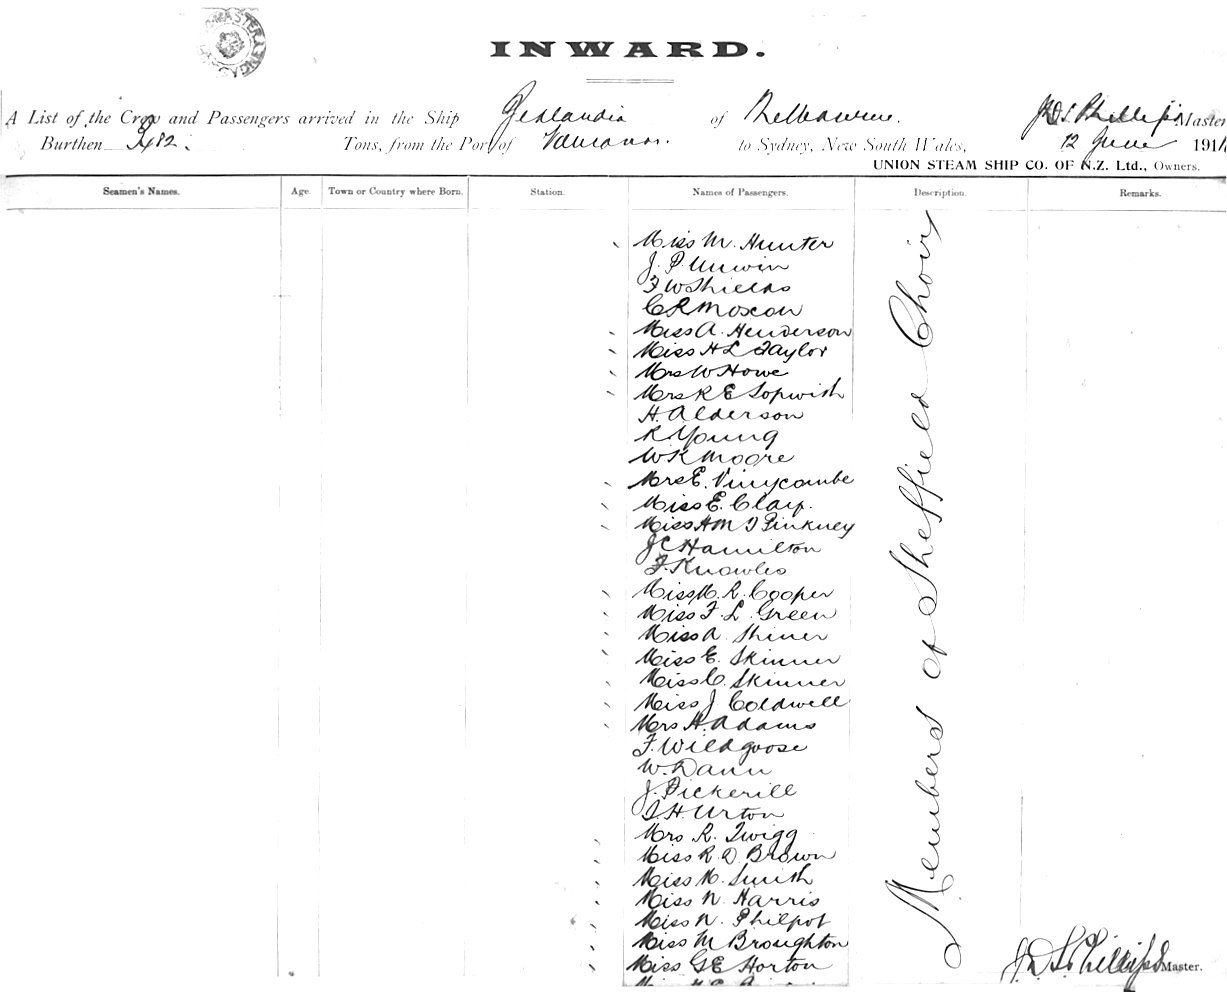 INWARD.
A List of the Crew and Passengers arrived in the Ship Zealandia of Melbourne. J.D.S. Phillips Master
Burthen 3482. Tons, from the Port of Vancouver. to Sydney, New South Wales, 12 June 191
UNION STEAM SHIP CO. OF N.Z. Ltd., Owners.
Seamen's Names. Age. Town or Country where Born. Station. Names of Passengers. Description. Remarks.
Miss M. Hunter
J. P Unwin
F W Shields
C R Moxon
Miss A. Henderson
Miss H L Taylor
Mrs W Howe
Mrs R E Sopwith
H. Alderson
R Young
W K Moore
Mrs E. Vinycombe
Miss E. Clay.
Miss H M I Pinkney
J C Hamilton
F. Knowles
Miss M. R. Cooper
Miss F. L. Green
Miss A. Shiner
Miss E. Skinner
Miss C. Skinner
Miss J Coldwell
Mrs H. Adams
F. Wildgoose
W. Dann
J. Pickerill
I H. Urton
Mrs R. Twigg
Miss R. D. Brown
Miss M. Smith
Miss N. Harris
Miss N. Philpot
Miss M Broughton
Miss G E Horton
Members of Sheffield Choir
J.D.S. Phillips Master.